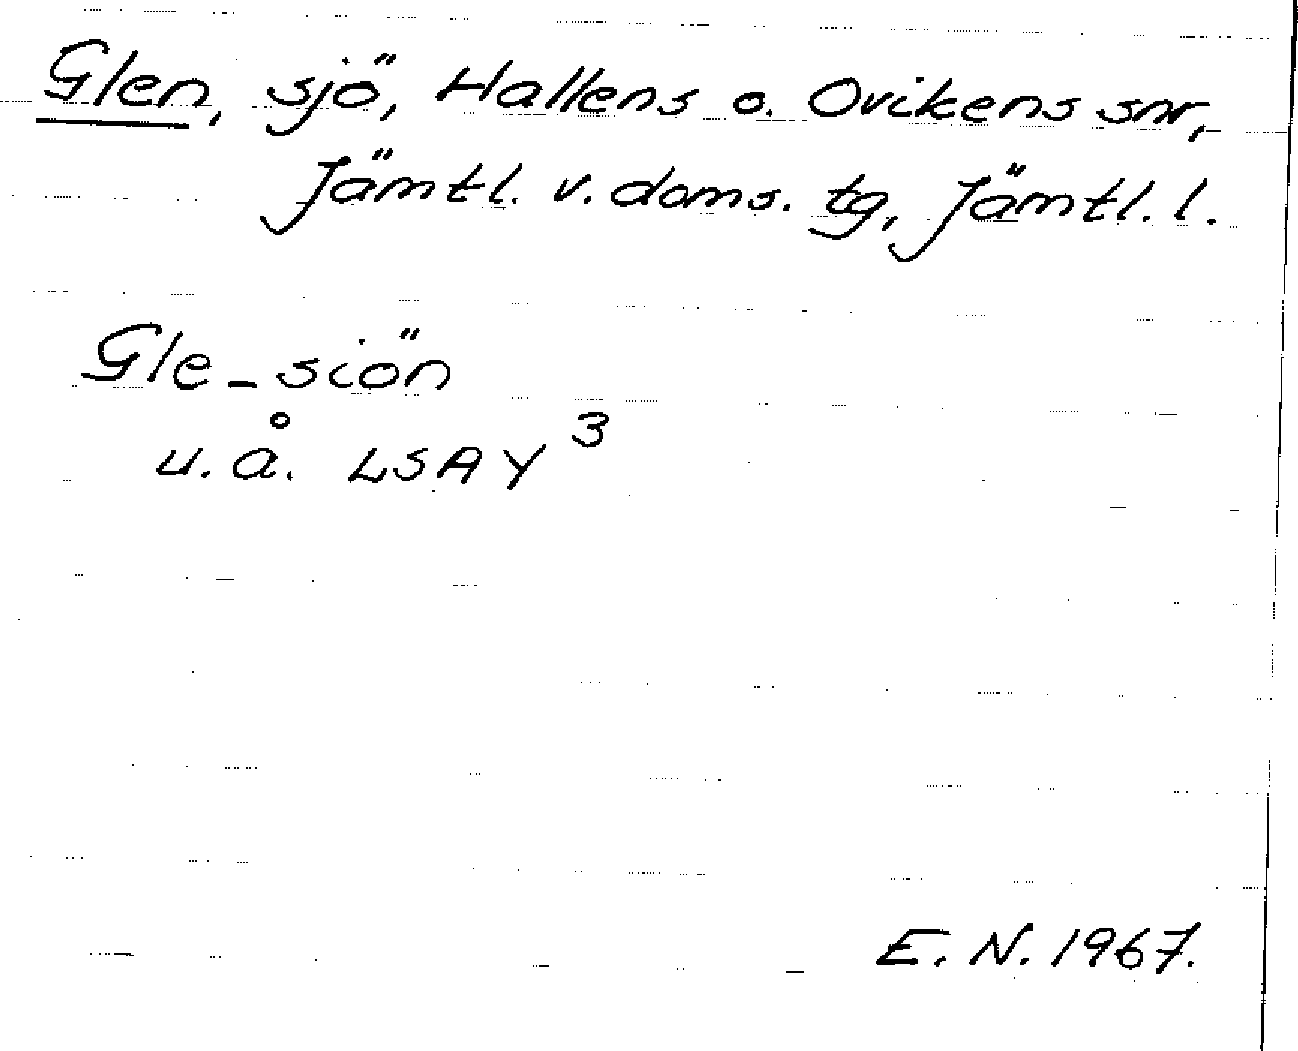 Glen, sjö, Hallens o. Ovikens snr,
Jämtl. v. doms. tg, Jämtl. l.
Gle-siön
u. å. LSA Y³
E. N. 1967.